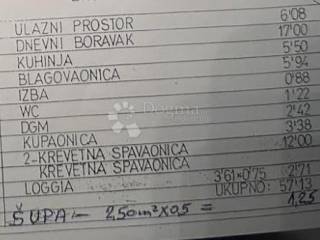 ULAZNI PROSTOR 6'08
DNEVNI BORAVAK 17'00
KUHINJA 5'50
BLAGOVAONICA 5'94
IZBA 0'88
WC 1'22
DGM 2'42
KUPAONICA 3'38
2-KREVETNA SPAVAONICA 12'00
KREVETNA SPAVAONICA
LOGGIA 3'61×0'75 2'71
UKUPNO: 57'13
ŠUPA - 2,50m²×0,5 = 1,25
Dogma